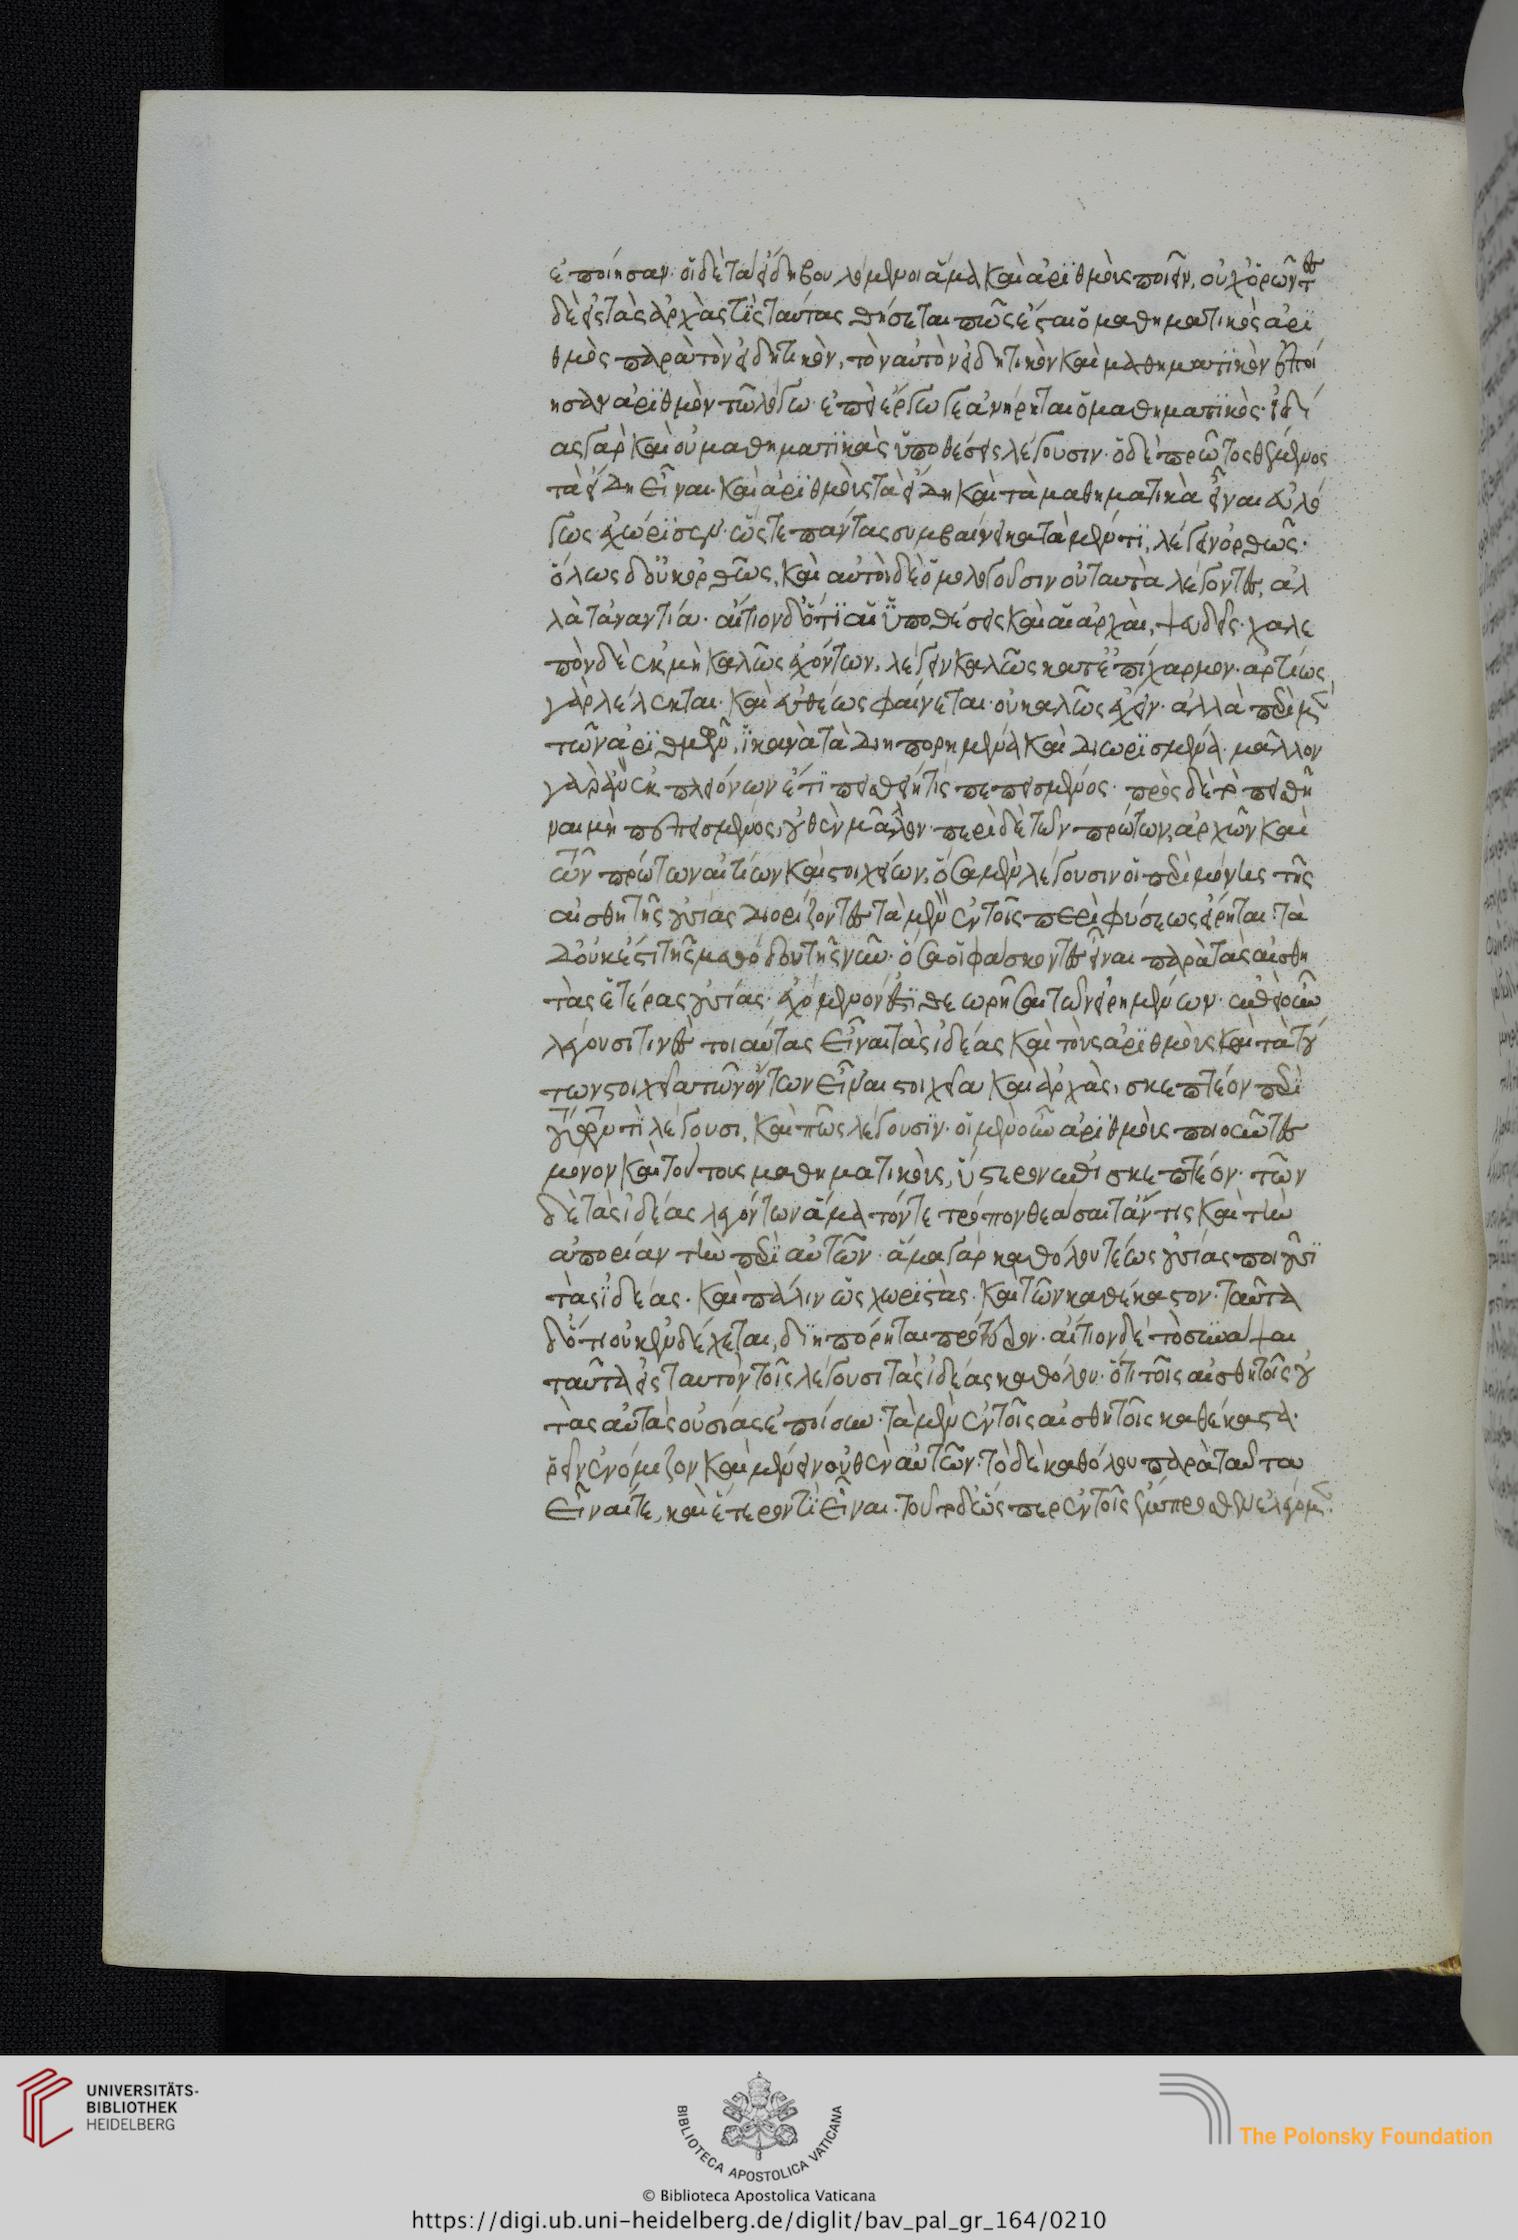 ἐποίησαν· οἱ δὲ τὰ εἴδη βουλόμενοι ἅμα καὶ ἀριθμοὺς ποιεῖν, οὐχ ὁρῶντες
δὲ εἰς τὰς ἀρχὰς τὶς ταύτας θήσεται πῶς ἔσται ὁ μαθηματικὸς ἀρι
θμὸς παρὰ τὸν εἰδητικὸν, τὸν αὐτὸν εἰδητικὸν καὶ μαθηματικὸν ἐποί
ησαν ἀριθμὸν τῶ λόγω· ἐπεὶ ἔργω γε ἀνήρηται ὁ μαθηματικὸς· ἰδί
ας γὰρ καὶ οὐ μαθηματικὰς ὑποθέσεις λέγουσιν· ὁ δὲ πρῶτος θέμενος
τὰ εἴδη εἶναι· καὶ ἀριθμοὺς τὰ εἴδη καὶ τὰ μαθηματικὰ εἶναι εὐλό
γως ἐχώρισεν· ὥστε πάντας συμβαίνει κατὰ μέν τι, λέγειν ὀρθῶς·
ὅλως δ' οὐκ ὀρθῶς, καὶ αὐτοὶ δὲ ὁμολογοῦσιν οὐ ταυτὰ λέγοντες, ἀλ
λὰ τἀναντία· αἴτιον δ' ὅτι αἱ ὑποθέσεις καὶ αἱ ἀρχαὶ, ψευδεῖς· χαλε
πὸν δὲ ἐκ μὴ καλῶς ἐχόντων, λέγειν καλῶς κατ' ἐπίχαρμον· ἀρτίως
γὰρ λέλεκται· καὶ εὐθέως φαίνεται· οὐ καλῶς ἔχειν· ἀλλὰ περὶ μὲν
τῶν ἀριθμῶν, ἱκανὰ τὰ διηπορημένα καὶ διωρισμένα· μᾶλλον
γὰρ ἂν ἐκ πλειόνων ἔτι πεισθείη τὶς πεπεισμένος· πρὸς δὲ τὸ πεισθῆ
ναι μὴ πεπεισμένος, οὐθὲν μᾶλλον· περὶ δὲ τῶν πρώτων ἀρχῶν καὶ
τῶν πρώτων αἰτίων καὶ στοιχείων, ὅσα μὲν λέγουσιν οἱ περὶ μόνης τῆς
αἰσθητῆς οὐσίας διορίζοντες τὰ μὲν ἐν τοῖς περὶ φύσεως εἴρηται· τὰ
δ' οὐκ ἔστι τῆς μεθόδου τῆς νῦν· ὅσα οἱ φάσκοντες εἶναι παρὰ τὰς αἰσθη
τὰς ἑτέρας οὐσίας· ἐχόμενόν ἐστι θεωρῆσαι τῶν εἰρημένων· ἐπεὶ οὖν
λέγουσί τινες τοιαύτας εἶναι τὰς ἰδέας καὶ τοὺς ἀριθμοὺς καὶ τὰ τού
των στοιχεῖα τῶν ὄντων εἶναι στοιχεῖα καὶ ἀρχὰς, σκεπτέον περὶ
τούτων τί λέγουσι, καὶ πῶς λέγουσιν· οἱ μὲν οὖν ἀριθμοὺς ποιοῦντες
μόνον καὶ τούτους μαθηματικοὺς, ὕστερον ἐπισκεπτέον· τῶν
δὲ τὰς ἰδέας λεγόντων ἅμα τόν τε τρόπον θεάσαιτ' ἄν τις καὶ τὴν
ἀπορίαν τὴν περὶ αὐτῶν· ἅμα γὰρ καθόλου τε ὡς οὐσίας ποιοῦσι
τὰς ἰδέας· καὶ πάλιν ὡς χωριστὰς· καὶ τῶν καθέκαστον· ταῦτα
δ' ὅτι οὐκ ἐνδέχεται, διηπόρηται πρότερον· αἴτιον δὲ τὸ συνάψαι
ταῦτα εἰς ταυτὸν τοῖς λέγουσι τὰς ἰδέας καθόλου· ὅτι τοῖς αἰσθητοῖς οὐ
τὰς αὐτὰς οὐσίας ἐποίουν· τὰ μὲν ἐν τοῖς αἰσθητοῖς καθέκαστα·
ῥεῖν ἐνόμιζον καὶ μένειν οὐθὲν αὐτῶν· τὸ δὲ καθόλου παρὰ ταῦτα
εἶναί τε, καὶ ἕτερόν τι εἶναι· τοῦτο δ' ὥσπερ ἐν τοῖς ἔμπροσθεν ἐλέγομεν·
UNIVERSITÄTS-
BIBLIOTHEK
HEIDELBERG
BIBLIOTECA APOSTOLICA VATICANA
The Polonsky Foundation
© Biblioteca Apostolica Vaticana
https://digi.ub.uni-heidelberg.de/diglit/bav_pal_gr_164/0210